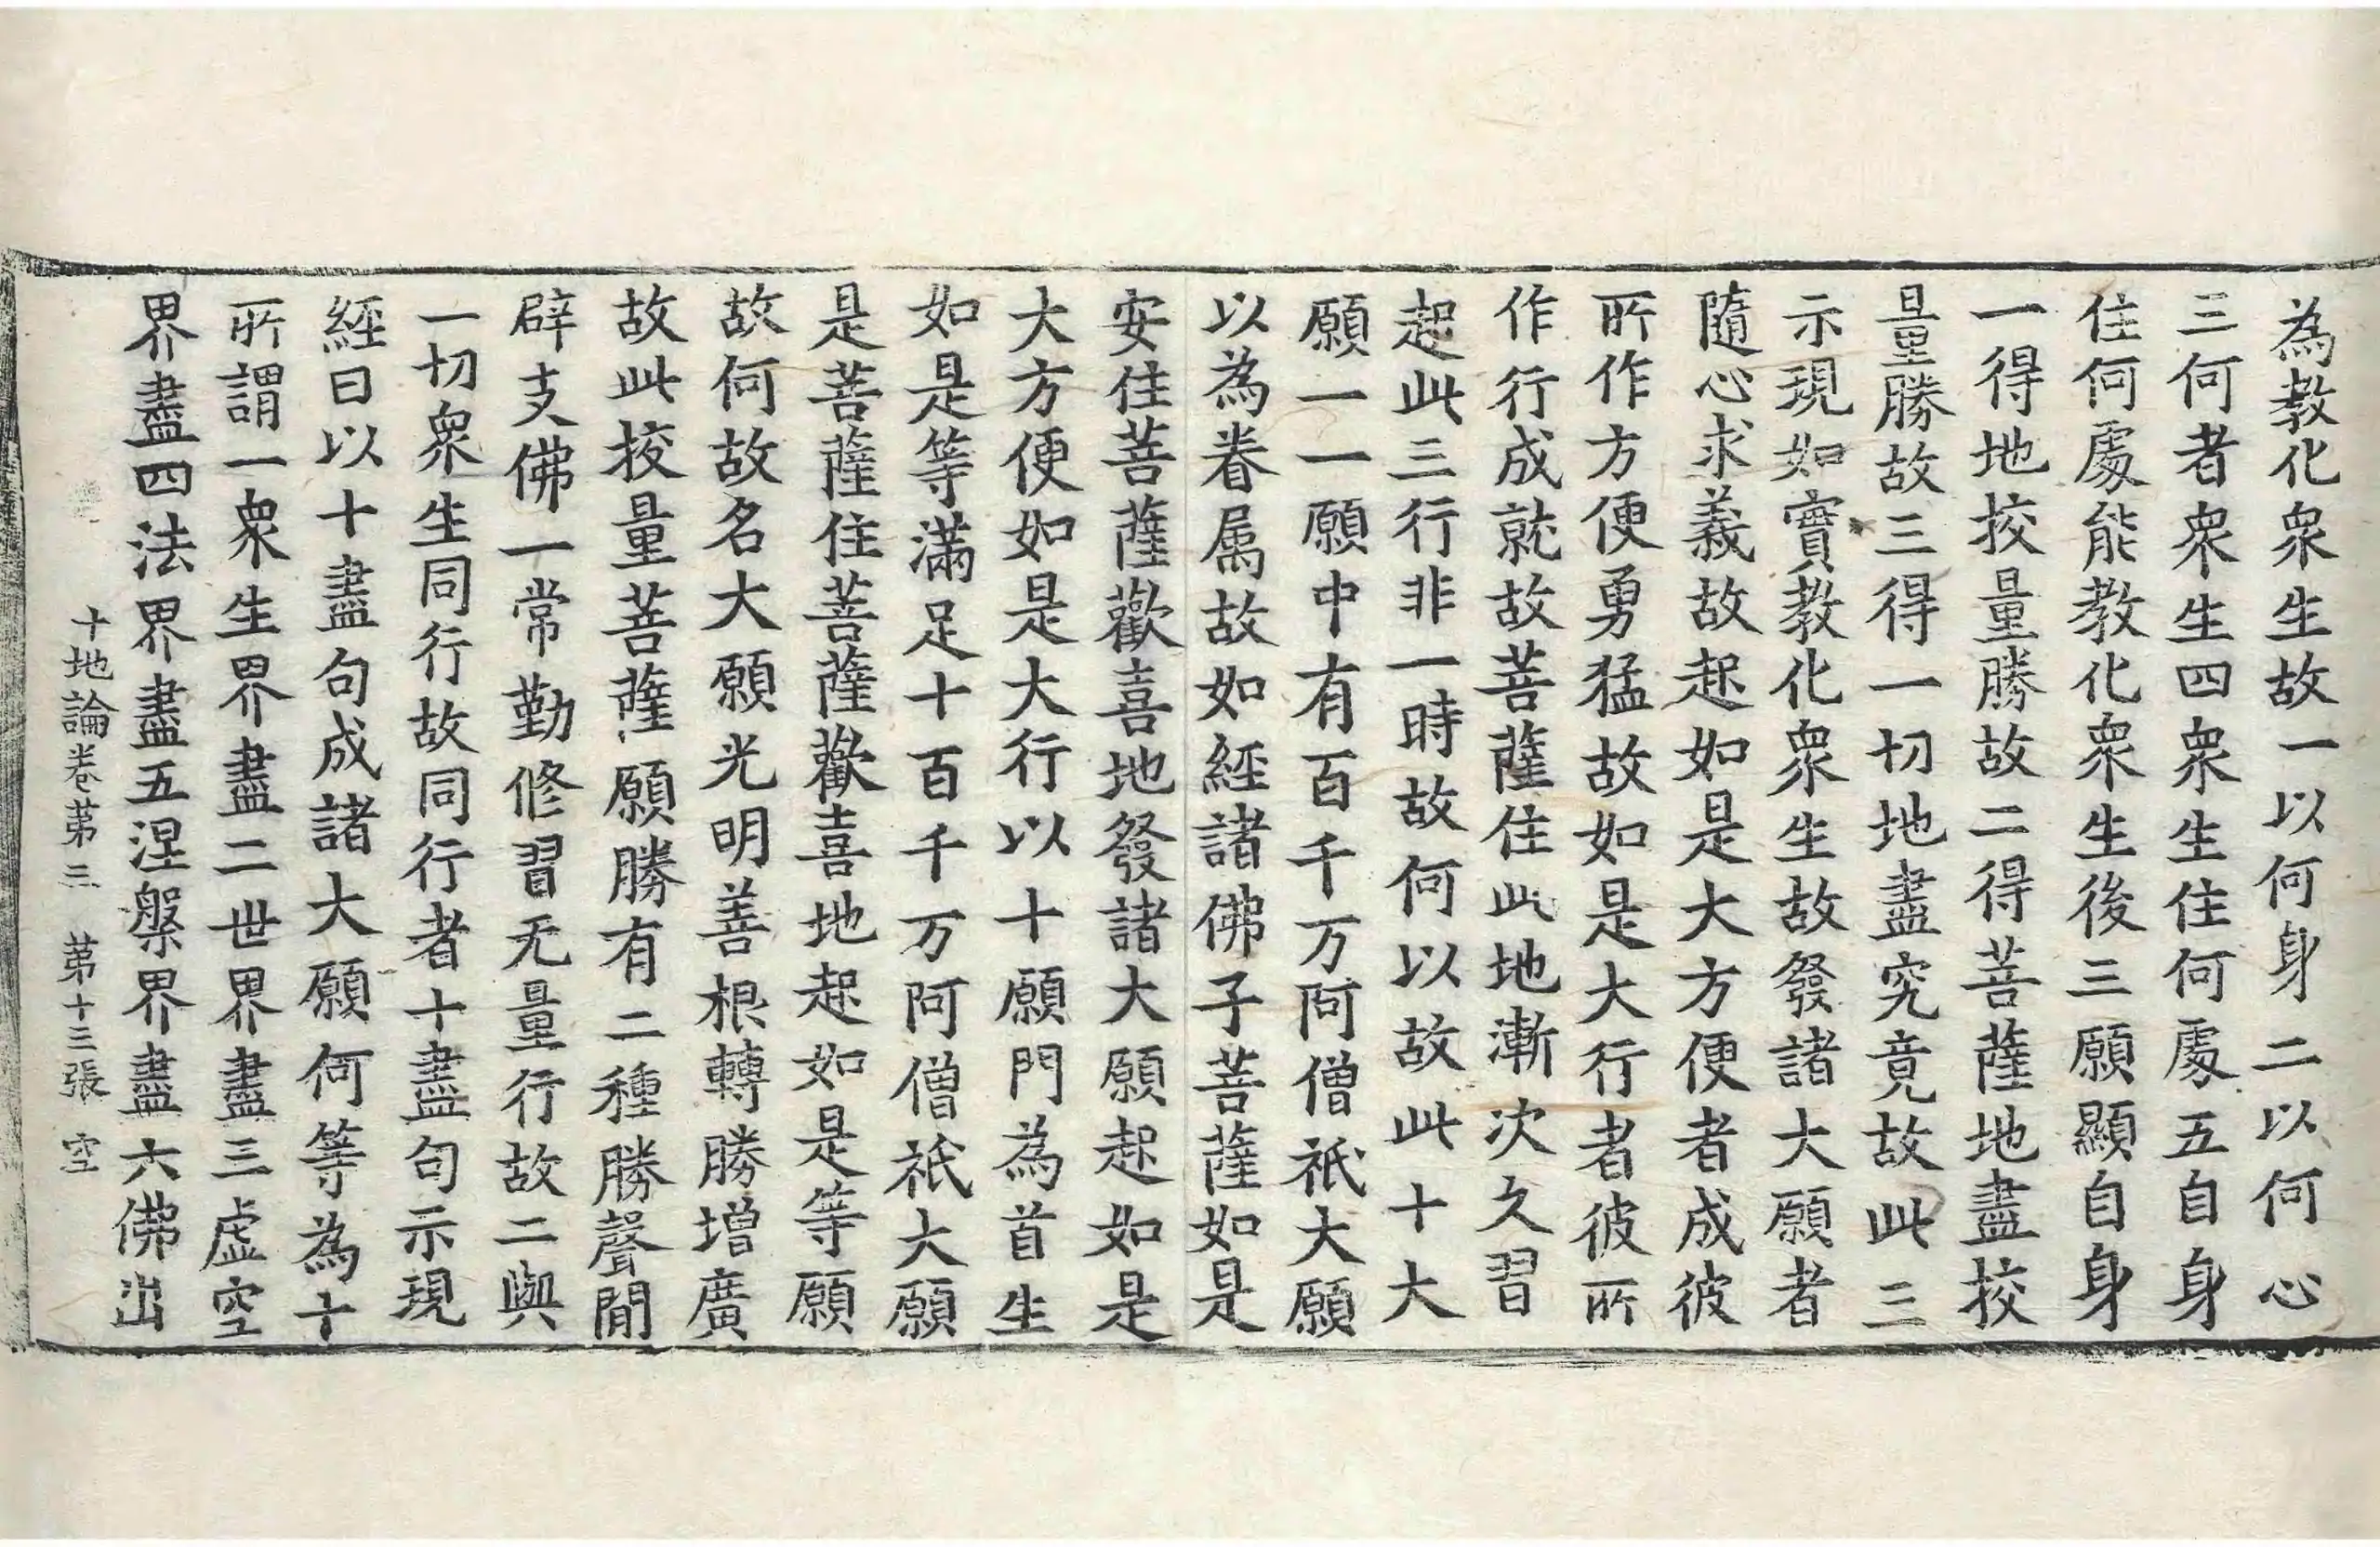 為教化衆生故一以何身二以何心
三何者衆生四衆生住何處五自身
住何處能教化衆生後三願顯自身
一得地挍量勝故二得菩薩地盡挍
量勝故三得一切地盡究竟故此三
示現如實教化衆生故發諸大願者
隨心求義故起如是大方便者成彼
所作方便勇猛故如是大行者彼所
作行成就故菩薩住此地漸次久習
起此三行非一時故何以故此十大
願一一願中有百千万阿僧祇大願
以為眷属故如經諸佛子菩薩如是
安住菩薩歡喜地發諸大願起如是
大方便如是大行以十願門為首生
如是等滿足十百千万阿僧祇大願
是菩薩住菩薩歡喜地起如是等願
故何故名大願光明善根轉勝增廣
故此挍量菩薩願勝有二種勝聲聞
辟支佛一常勤修習无量行故二與
一切衆生同行故同行者十盡句示現
經曰以十盡句成諸大願何等為十
所謂一衆生界盡二世界盡三虛空
界盡四法界盡五涅槃界盡六佛出
十地論卷苐三 苐十三張 空